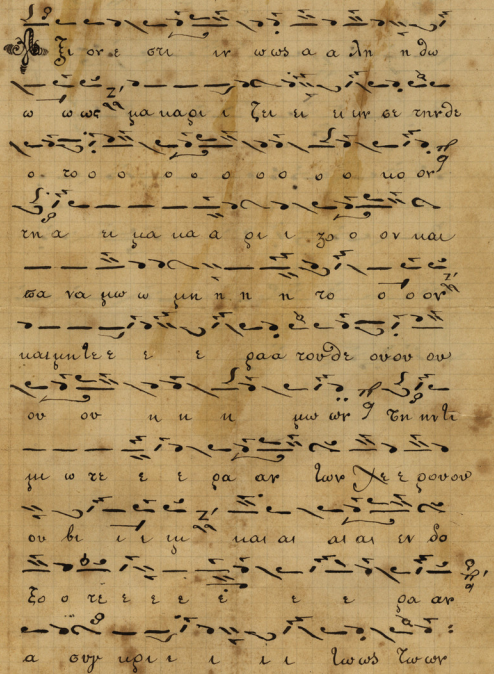 Α ξι ον ε στι ιν ω ως α α λη η θω
ω ω ως μα κα ρι ι ζει ει ει ειν σε την θε
ο το ο ο ο ο ο ο ο ο ο κο ον
τη α ει μα κα α ρι ι ϛο ο ον και
πα να μω ω μη η η η το ο ο ον
και μη τε ε ε ε ρα α του θε ου ου ου
ου ου η η η μω ων Τη ην τι
μι ω τε ε ε ρα αν των Χε ε ρου ου
ου βι ι ι ιμ και αι αι αι εν δο
ξο ο τε ε ε ε ε ε ε ρα αν
α συγ κρι ι ι ι ι τω ως τω ων